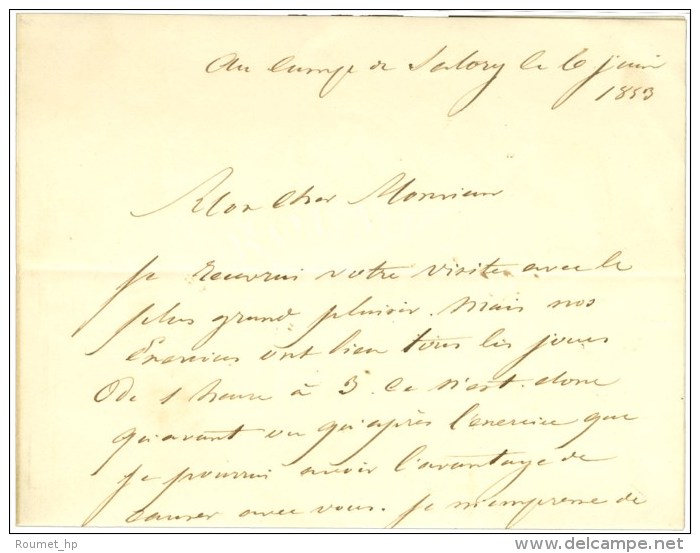 Au Camp de Satory le 6 juin
1853
Mon cher Monsieur
Je recevrai votre visite avec le
plus grand plaisir. Mais nos
Exercices ont lieu tous les jours
de 1 heure à 5. Ce n'est donc
qu'avant ou qu'après l'exercice que
je pourrai avoir l'avantage de
causer avec vous. Je m'empresse de
Roumet_hp
delcampe.net